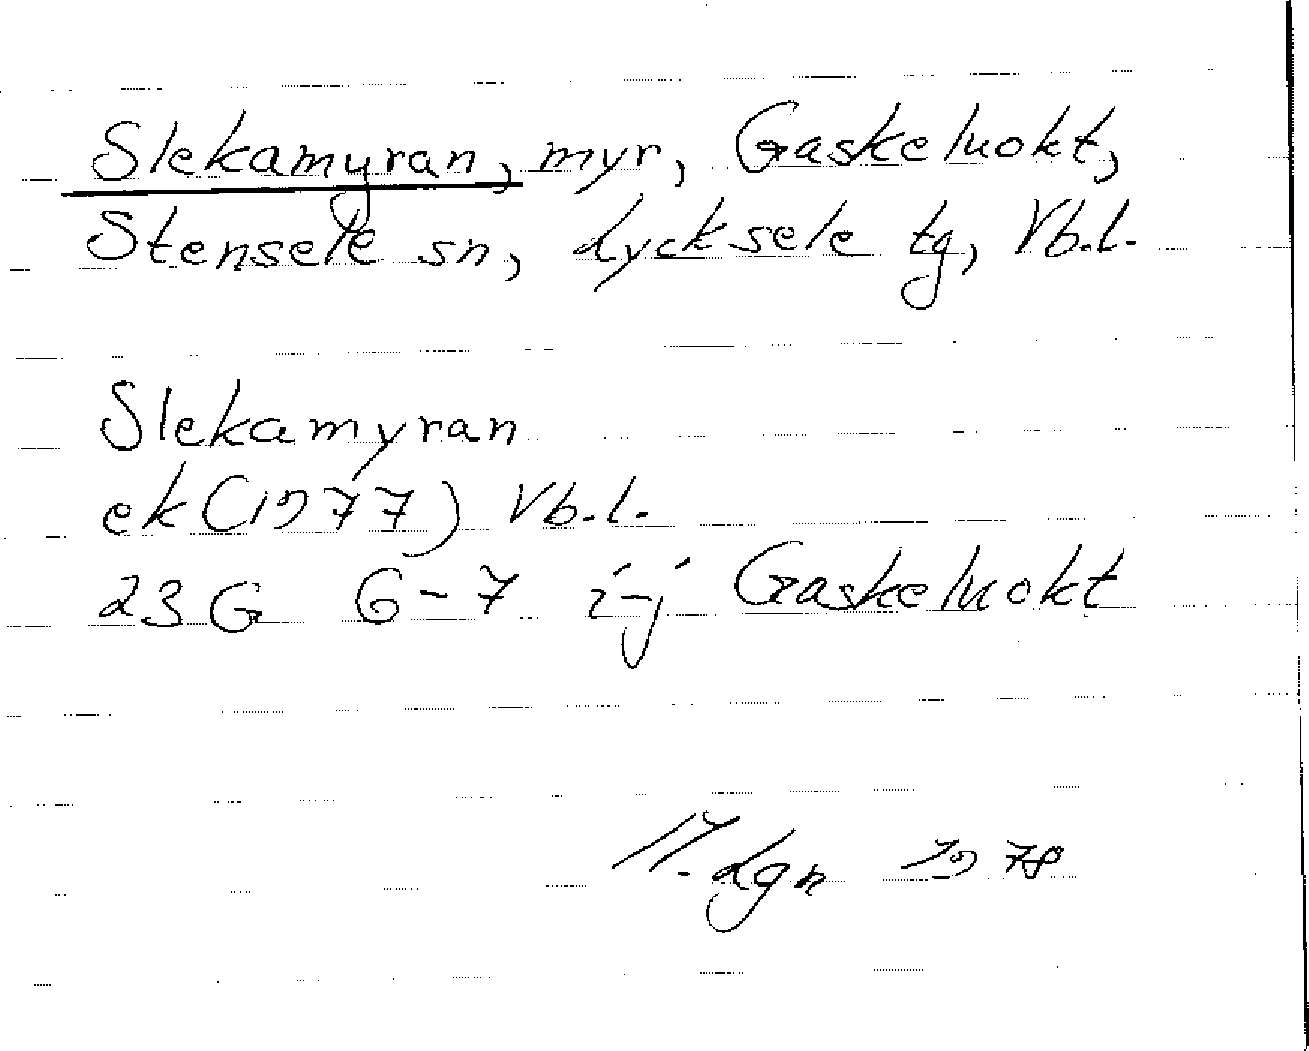 Slekamyran, myr, Gaskeluokt,
Stensele sn, Lycksele tg, Vb.l.
Slekamyran
ek (1977) Vb.l.
23 G 6-7 i-j Gaskeluokt
1978